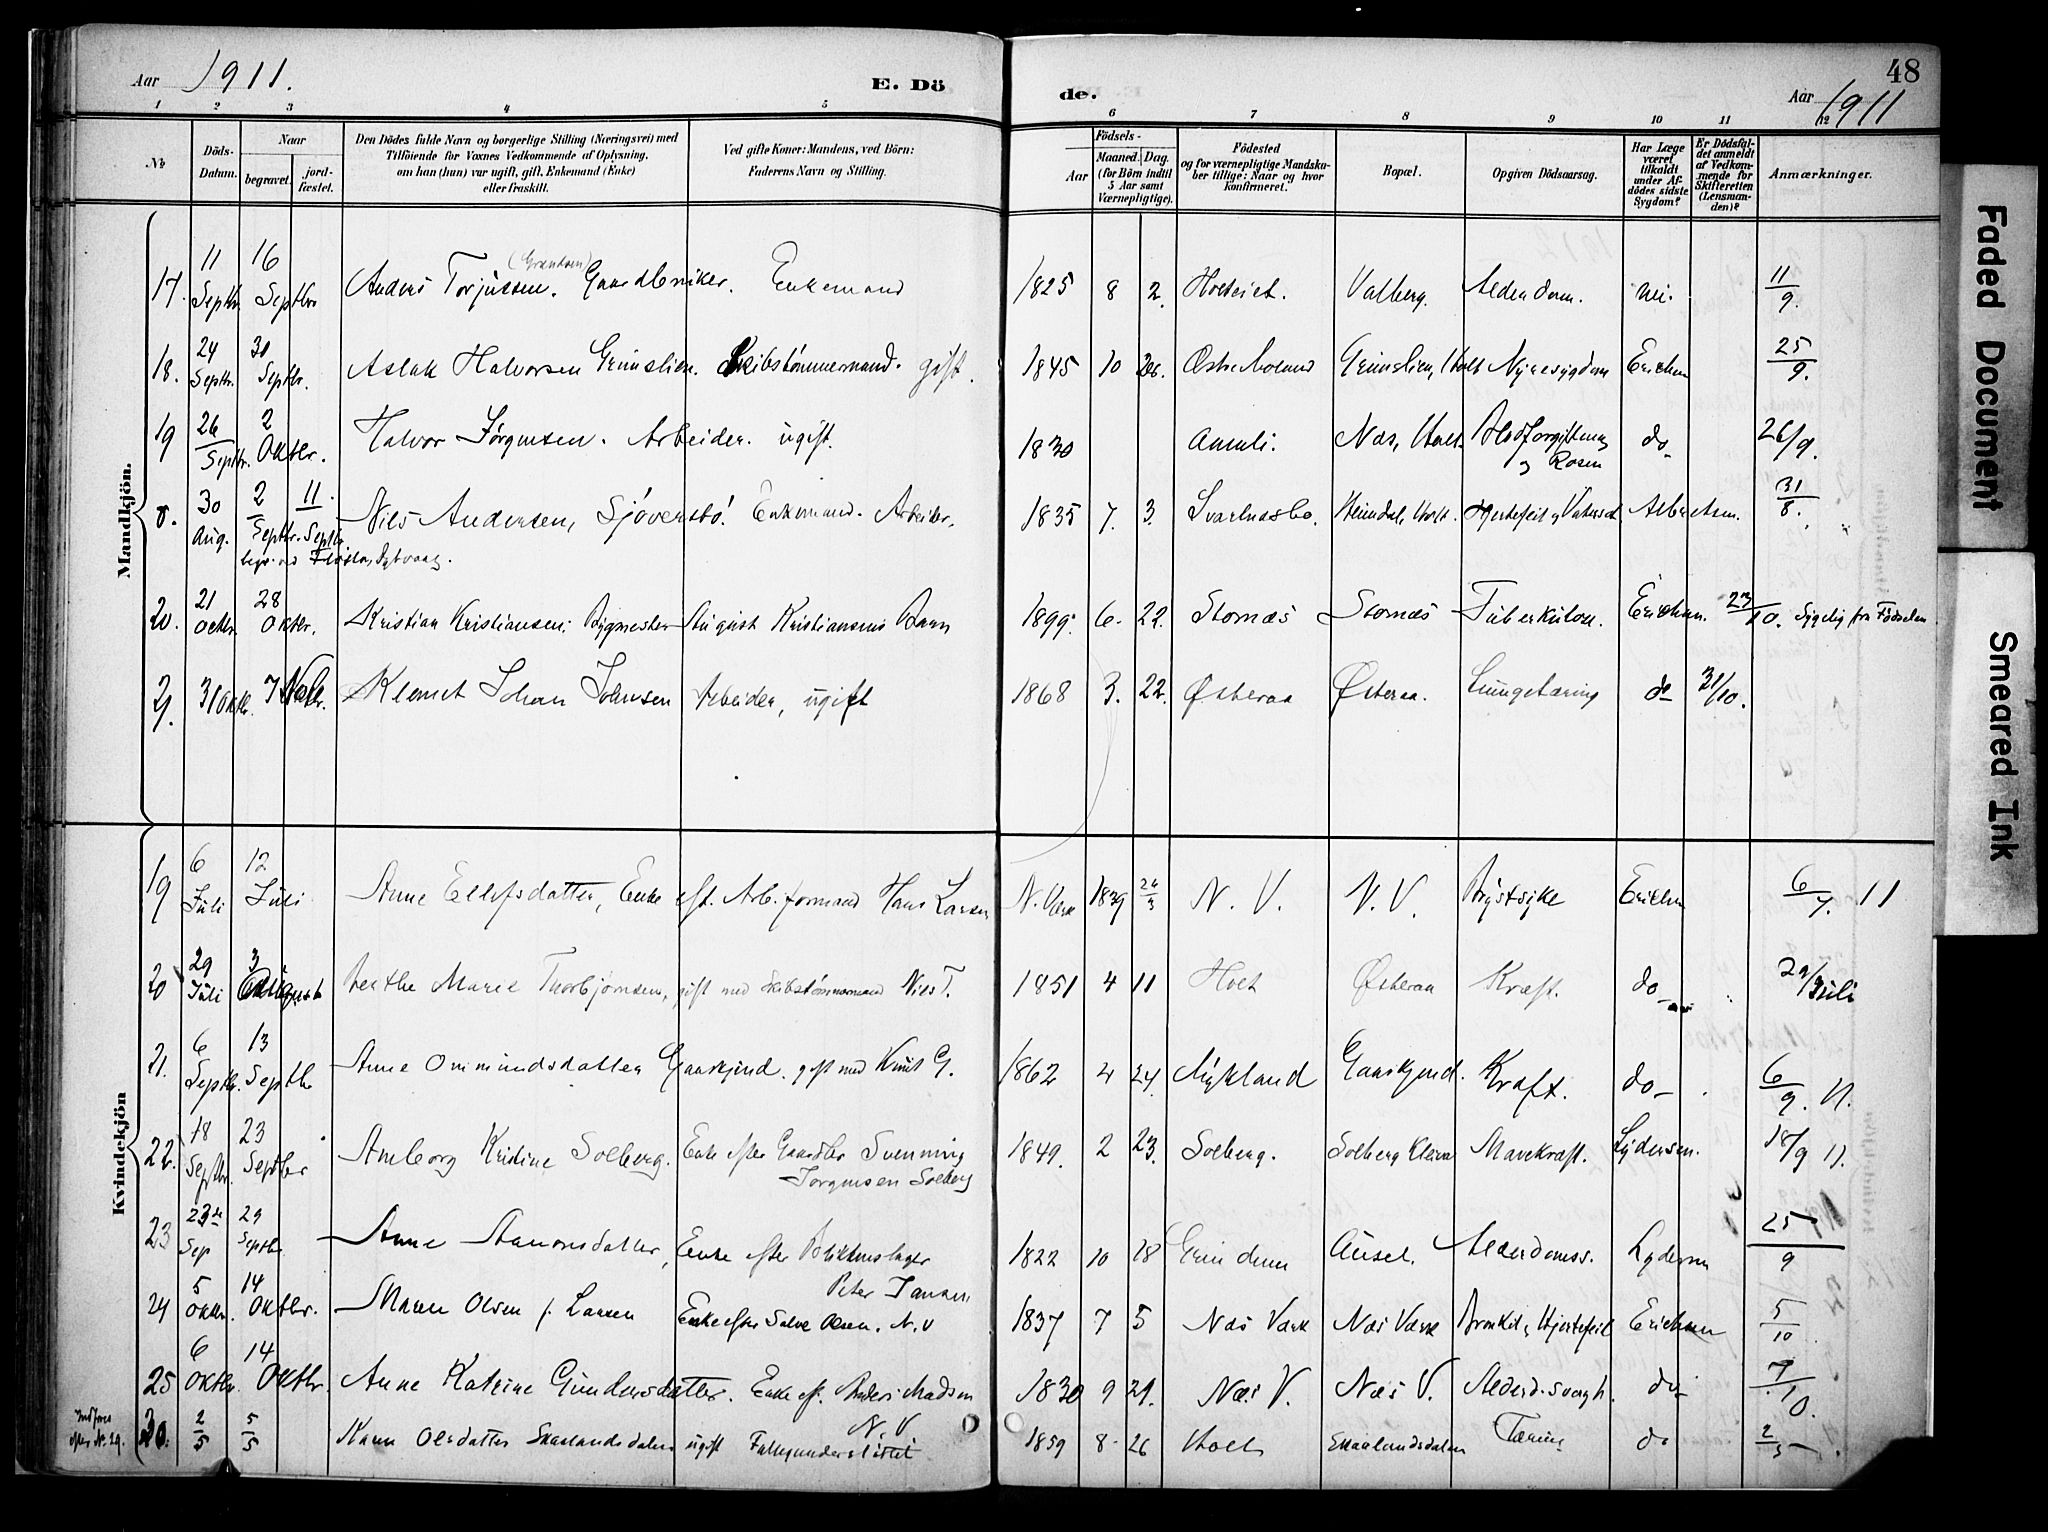 48
Aar 1911. E. Dö de. Aar 1911
1 2 3 4 5 6 7 8 9 10 11 12
No
Döds-Datum.
Naar
begravet.
jord-fæstet.
Den Dödes fulde Navn og borgerlige Stilling (Næringsvei) med
Tilföiende for Voxnes Vedkommende af Oplysning,
om han (hun) var ugift, gift, Enkemand (Enke)
eller fraskilt.
Ved gifte Koner: Mandens, ved Börn:
Faderens Navn og Stilling.
Födsels-
Aar
Maaned. Dag.
(for Börn indtil
5 Aar samt
Værnepligtige).
Födested
og for værnepligtige Mandska-
ber tillige: Naar og hvor
konfirmeret.
Bopæl.
Opgiven Dödsaarsag.
Har Læge
været
tilkaldt
under Af-
dödes sidste
Sygdom?
Er Dödsfal-
det anmeldt
af Vedkom-
mende for
Skifteretten
(Lensman-
den)?
Anmærkninger.
Mandkjön.
17. 11 Septbr. 16 Septbr Anders Torjussen. Gaardbruker. Enkemand 1825 8 2. Holteiet. Valberg. Alderdom. nei. 11/9.
18. 24 Septbr. 30 Septbr. Aslak Halvorsen Grimslien. Skibstömmermand. gift. 1845 10 Østre Moland Grimslien, Holt Nyresygdom Erichsen 25/9.
19 26 Septbr. 2 Oktbr. Halvor Jörgensen. Arbeider. ugift. 1830 Aamli. Næs, Holt. Blodforgiftning og Rosen do 26/9.
8. 30 Aug. 2 Septbr. 11 Septbr Nils Andersen, Enkemand. Arbeider. 1835 7. 3. Heimdal, Holt. Hjertefeil 31/8.
20. 21 octbr. 28 Oktbr. Kristian Kristiansen; August Kristiansens Barn 1899. 6. 22. Stornæs Stornæs Tuberkulose. Erichsen. 23/10. Sygelig fra Födselen
21. 31 Oktbr. 7 Novbr. Klemet Johan Johnsen Arbeider, ugift 1868 3. 22. Østeraa Østeraa. Lungetæring do 31/10.
Kvindekjön
19 6 Juli 12 Juli Anne Ellefsdatter, Enke eft. Arb.formand Hans Larsen N. Værk 1839 N. V. N. V. Brystsyke Erichsen 6/7. 11
20 29 Juli 3 August Berthe Marie Thorbjørnsen, gift med Skibstömmermand Nils T. 1851 4 11 Holt Østeraa Kræft. do 29/Juli
21. 6 Septbr. 13 Septbr Anne Ommundsdatter gift med Knut G. 1862 4 24. Mykland Kræft. do 6/9. 11.
22. 18 Septbr. 23 Septbr Anborg Kristine Solberg. Enke efter Gaardbr Svenning Jørgensen Solberg 1849. 2 23. Solberg. Solberg Mavekræft. Lydersen. 18/9 11.
23 23de Sep 29 Septbr. Anne Aanonsdatter, Enke efter Blikkenslager Peter Jansen 1822 10 28 Ausel. Alderdomss. Lydersen 25/9
24 5 Oktbr. 14 Oktbr. Maren Olsen f. Larsen Enke efter Salve Olsen. N. V 1837 7 5 Næs Værk Næs Værk Bronkit, Hjertefeil Erichsen 5/10
25 6 Oktbr. 14 Oktbr. Anne Katrine Gundersdatter. Enke ef. Anders Madsen N. V 1830 9 29. Næs V. Næs V. Alderd.svagh. do 7/10.
Indföres efter N. 29. 30. 2/5 5/5 Karen Olsdatter Skaalandsdalen ugift Fattigunderstöttet 1859 8 26 Holt Skaalandsdalen Tæring do 2/5
Faded Document
Smeared Ink